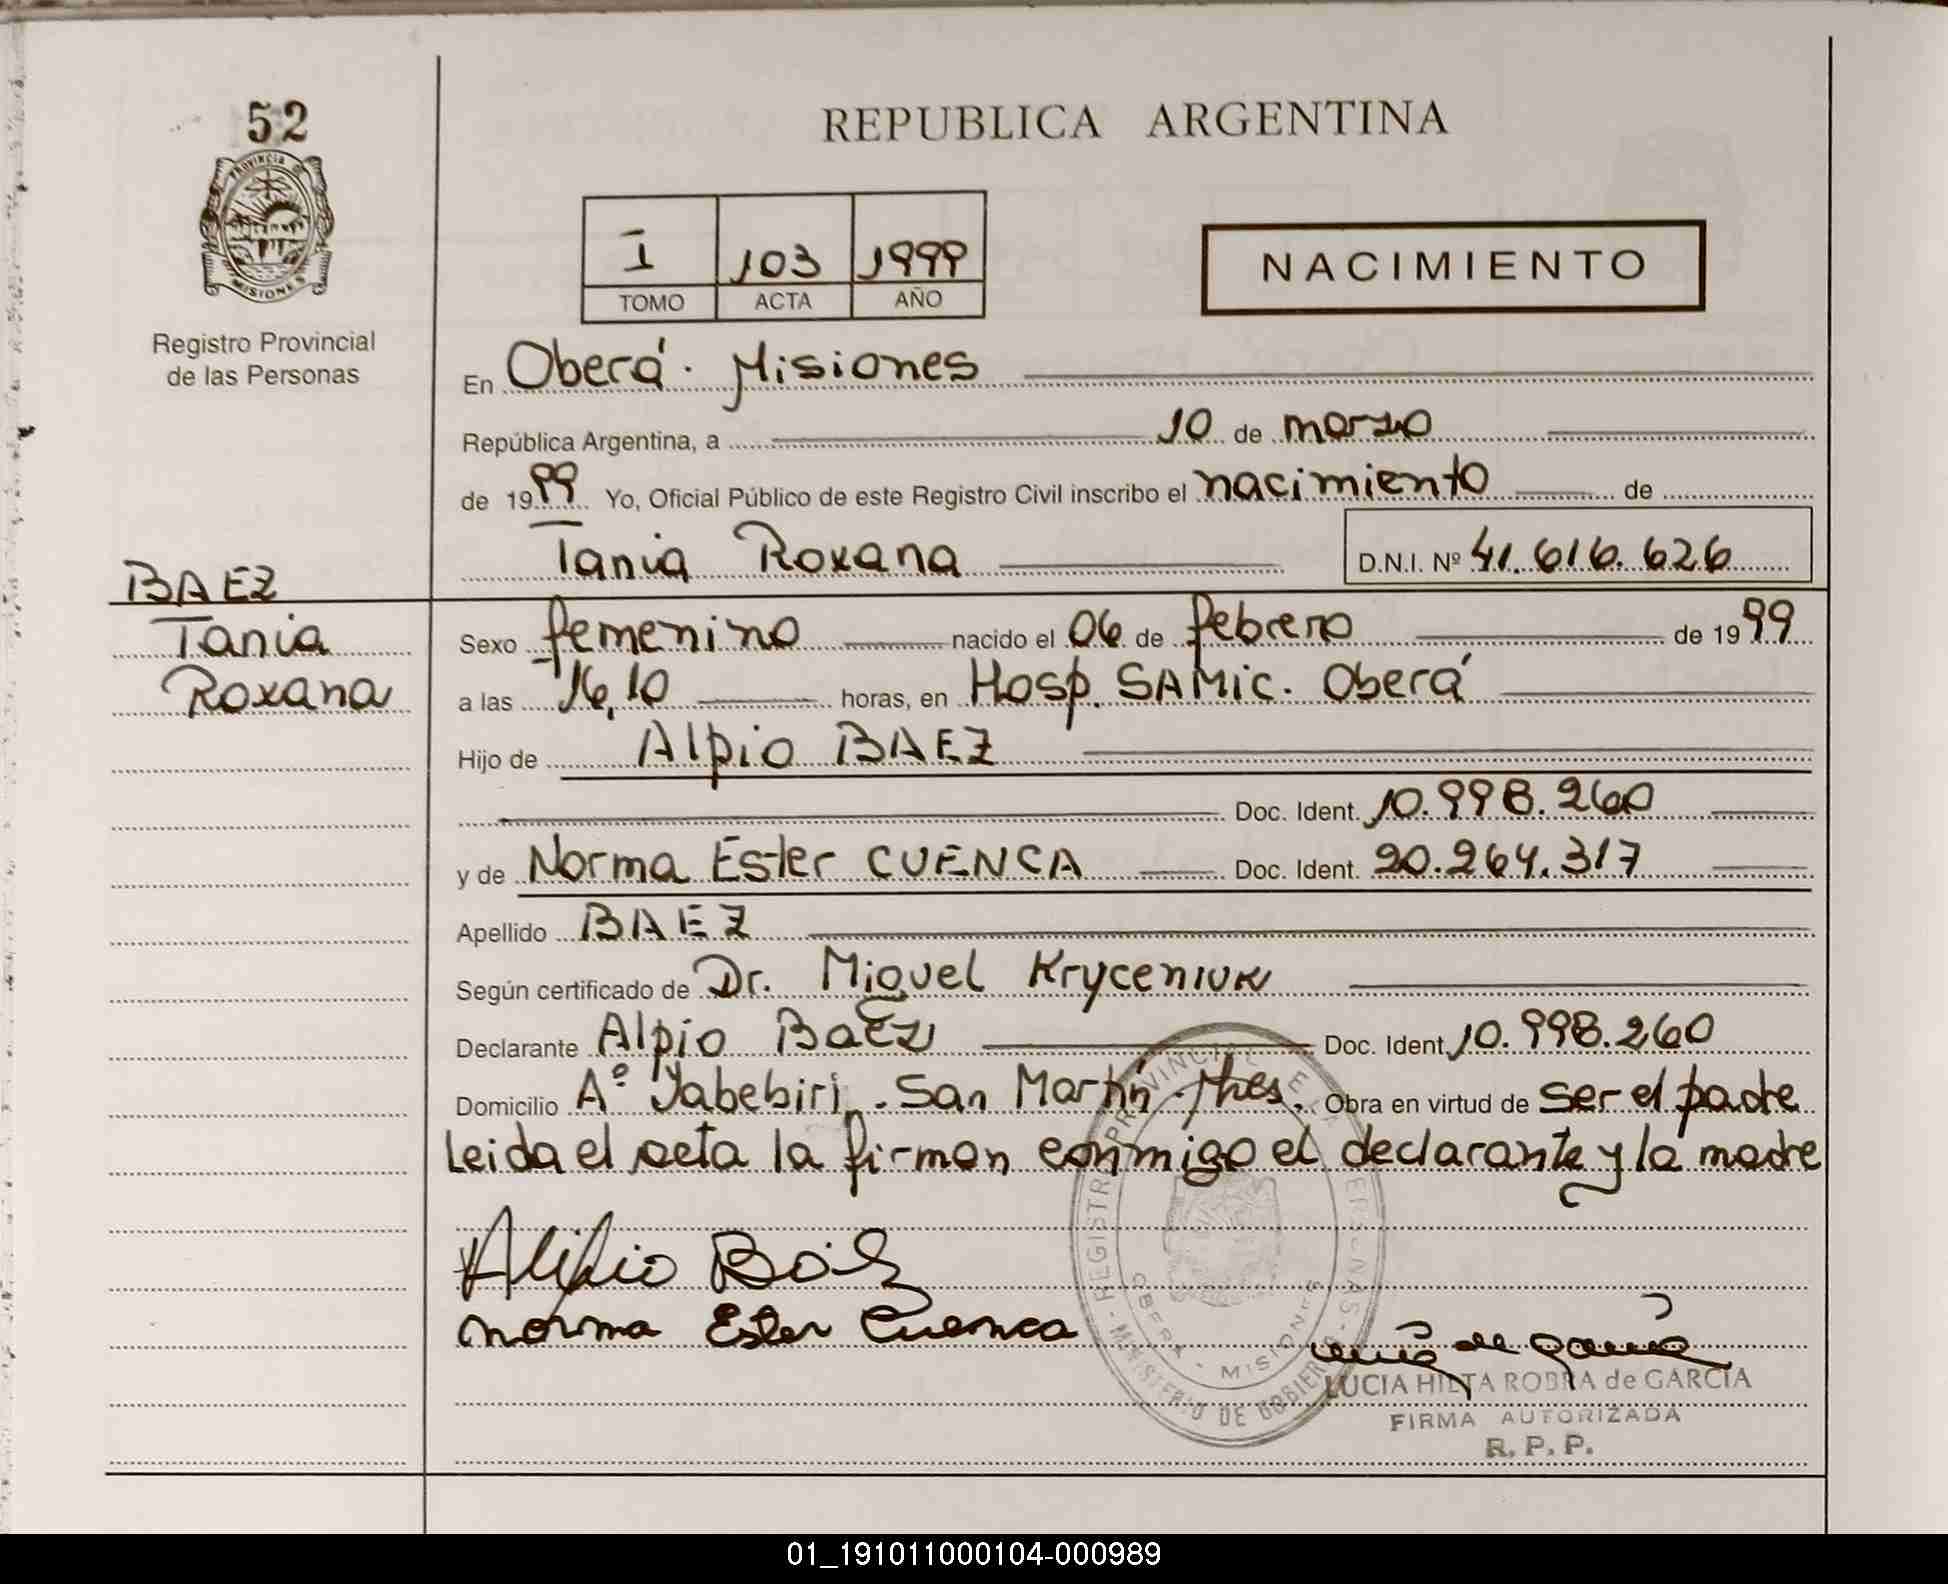 52
PROVINCIA
MISIONES
Registro Provincial
de las Personas
REPUBLICA ARGENTINA
I 103 1999
TOMO ACTA AÑO
NACIMIENTO
En Oberá. Misiones
República Argentina, a 10 de marzo
de 1999 Yo, Oficial Público de este Registro Civil inscribo el nacimiento de
Tania Roxana D.N.I. Nº 41.616.626
BAEZ
Tania
Roxana
Sexo femenino nacido el 06 de febrero de 1999
a las 16,10 horas, en Hosp. SAMic. Oberá
Hijo de Alpio BAEZ
Doc. Ident. 10.998.260
y de Norma Ester CUENCA Doc. Ident. 20.264.317
Apellido BAEZ
Según certificado de Dr. Miguel Kryceniuk
Declarante Alpio Baez Doc. Ident. 10.998.260
Domicilio Aº Yabebiri. San Martín. Mnes. Obra en virtud de ser el padre
Leida el acta la firman conmigo el declarante y la madre
Alipio Baez
Norma Ester Cuenca
REGISTRO PROVINCIAL DE LAS PERSONAS
MINISTERIO DE GOBIERNO
OBERA - MISIONES
LUCIA HILTA ROBRA de GARCIA
FIRMA AUTORIZADA
R. P. P.
01_191011000104-000989